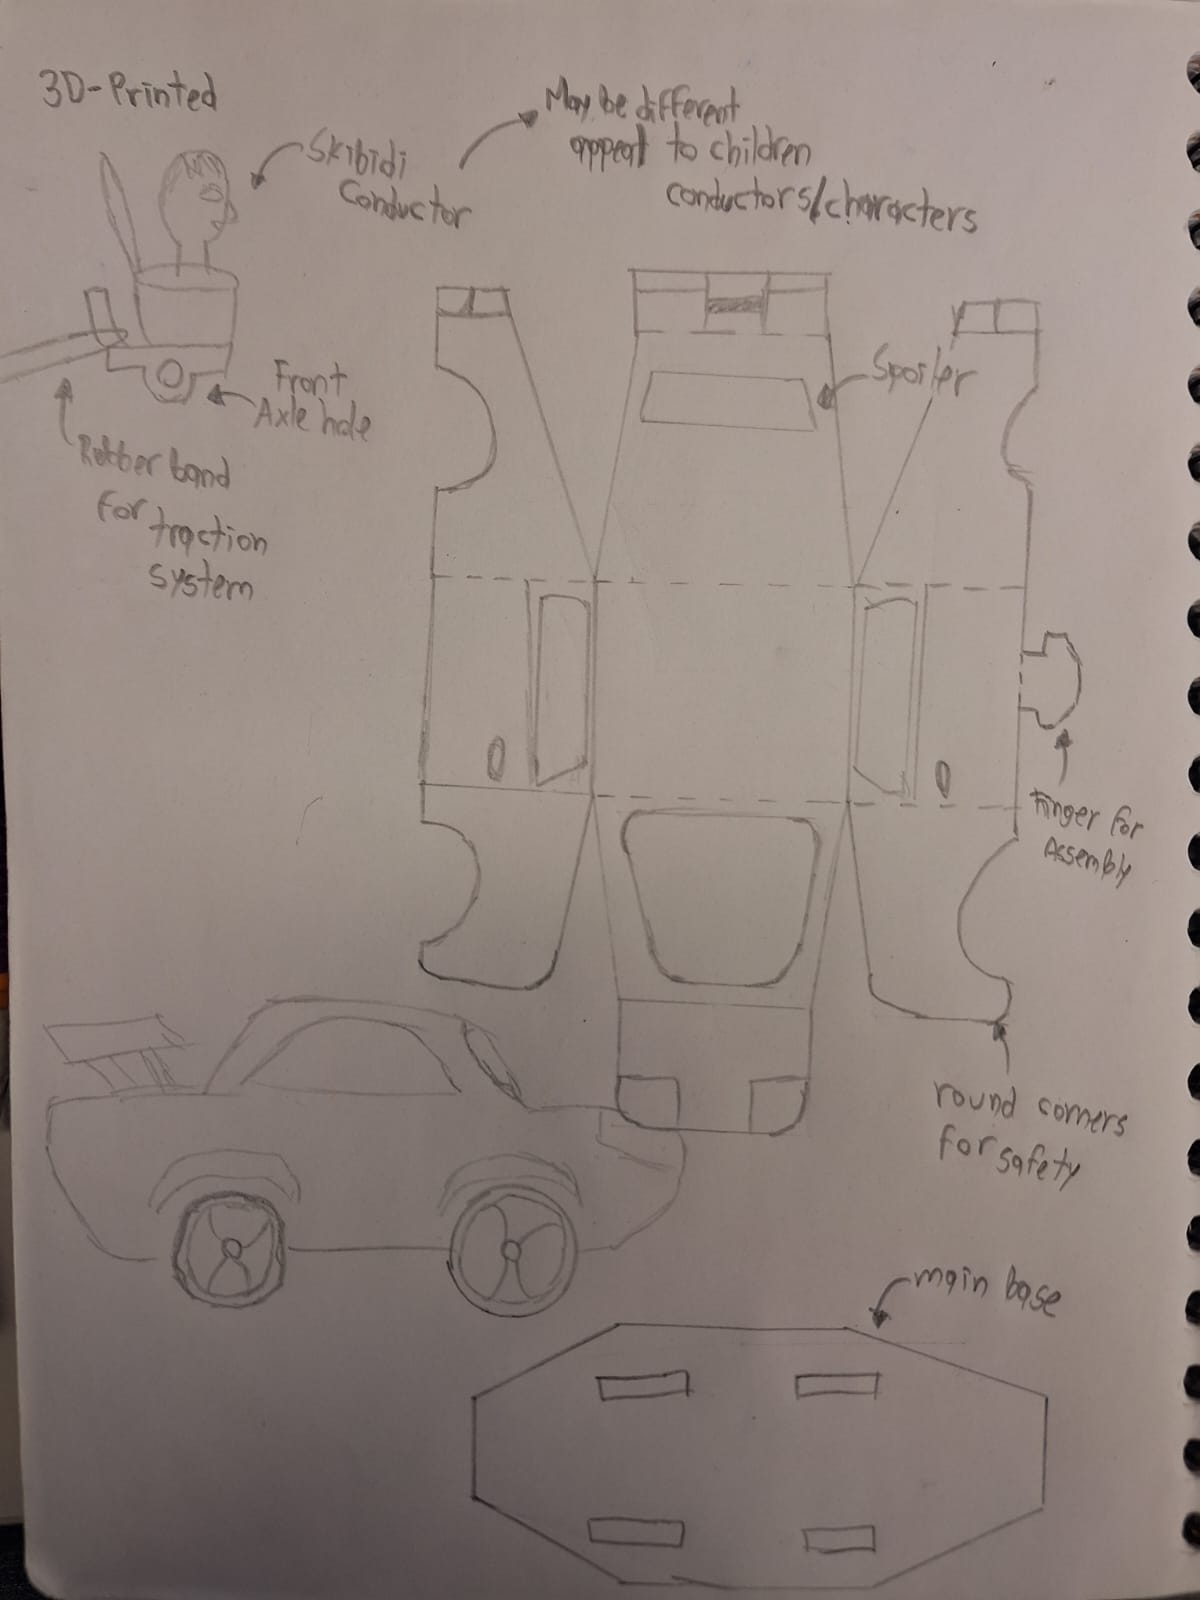 3D-Printed
Skibidi
Conductor
May be different
appeal to children
conductors/characters
Spoiler
Front
Axle hole
Rubber band
for traction
system
Finger for
Assembly
round corners
for safety
main base